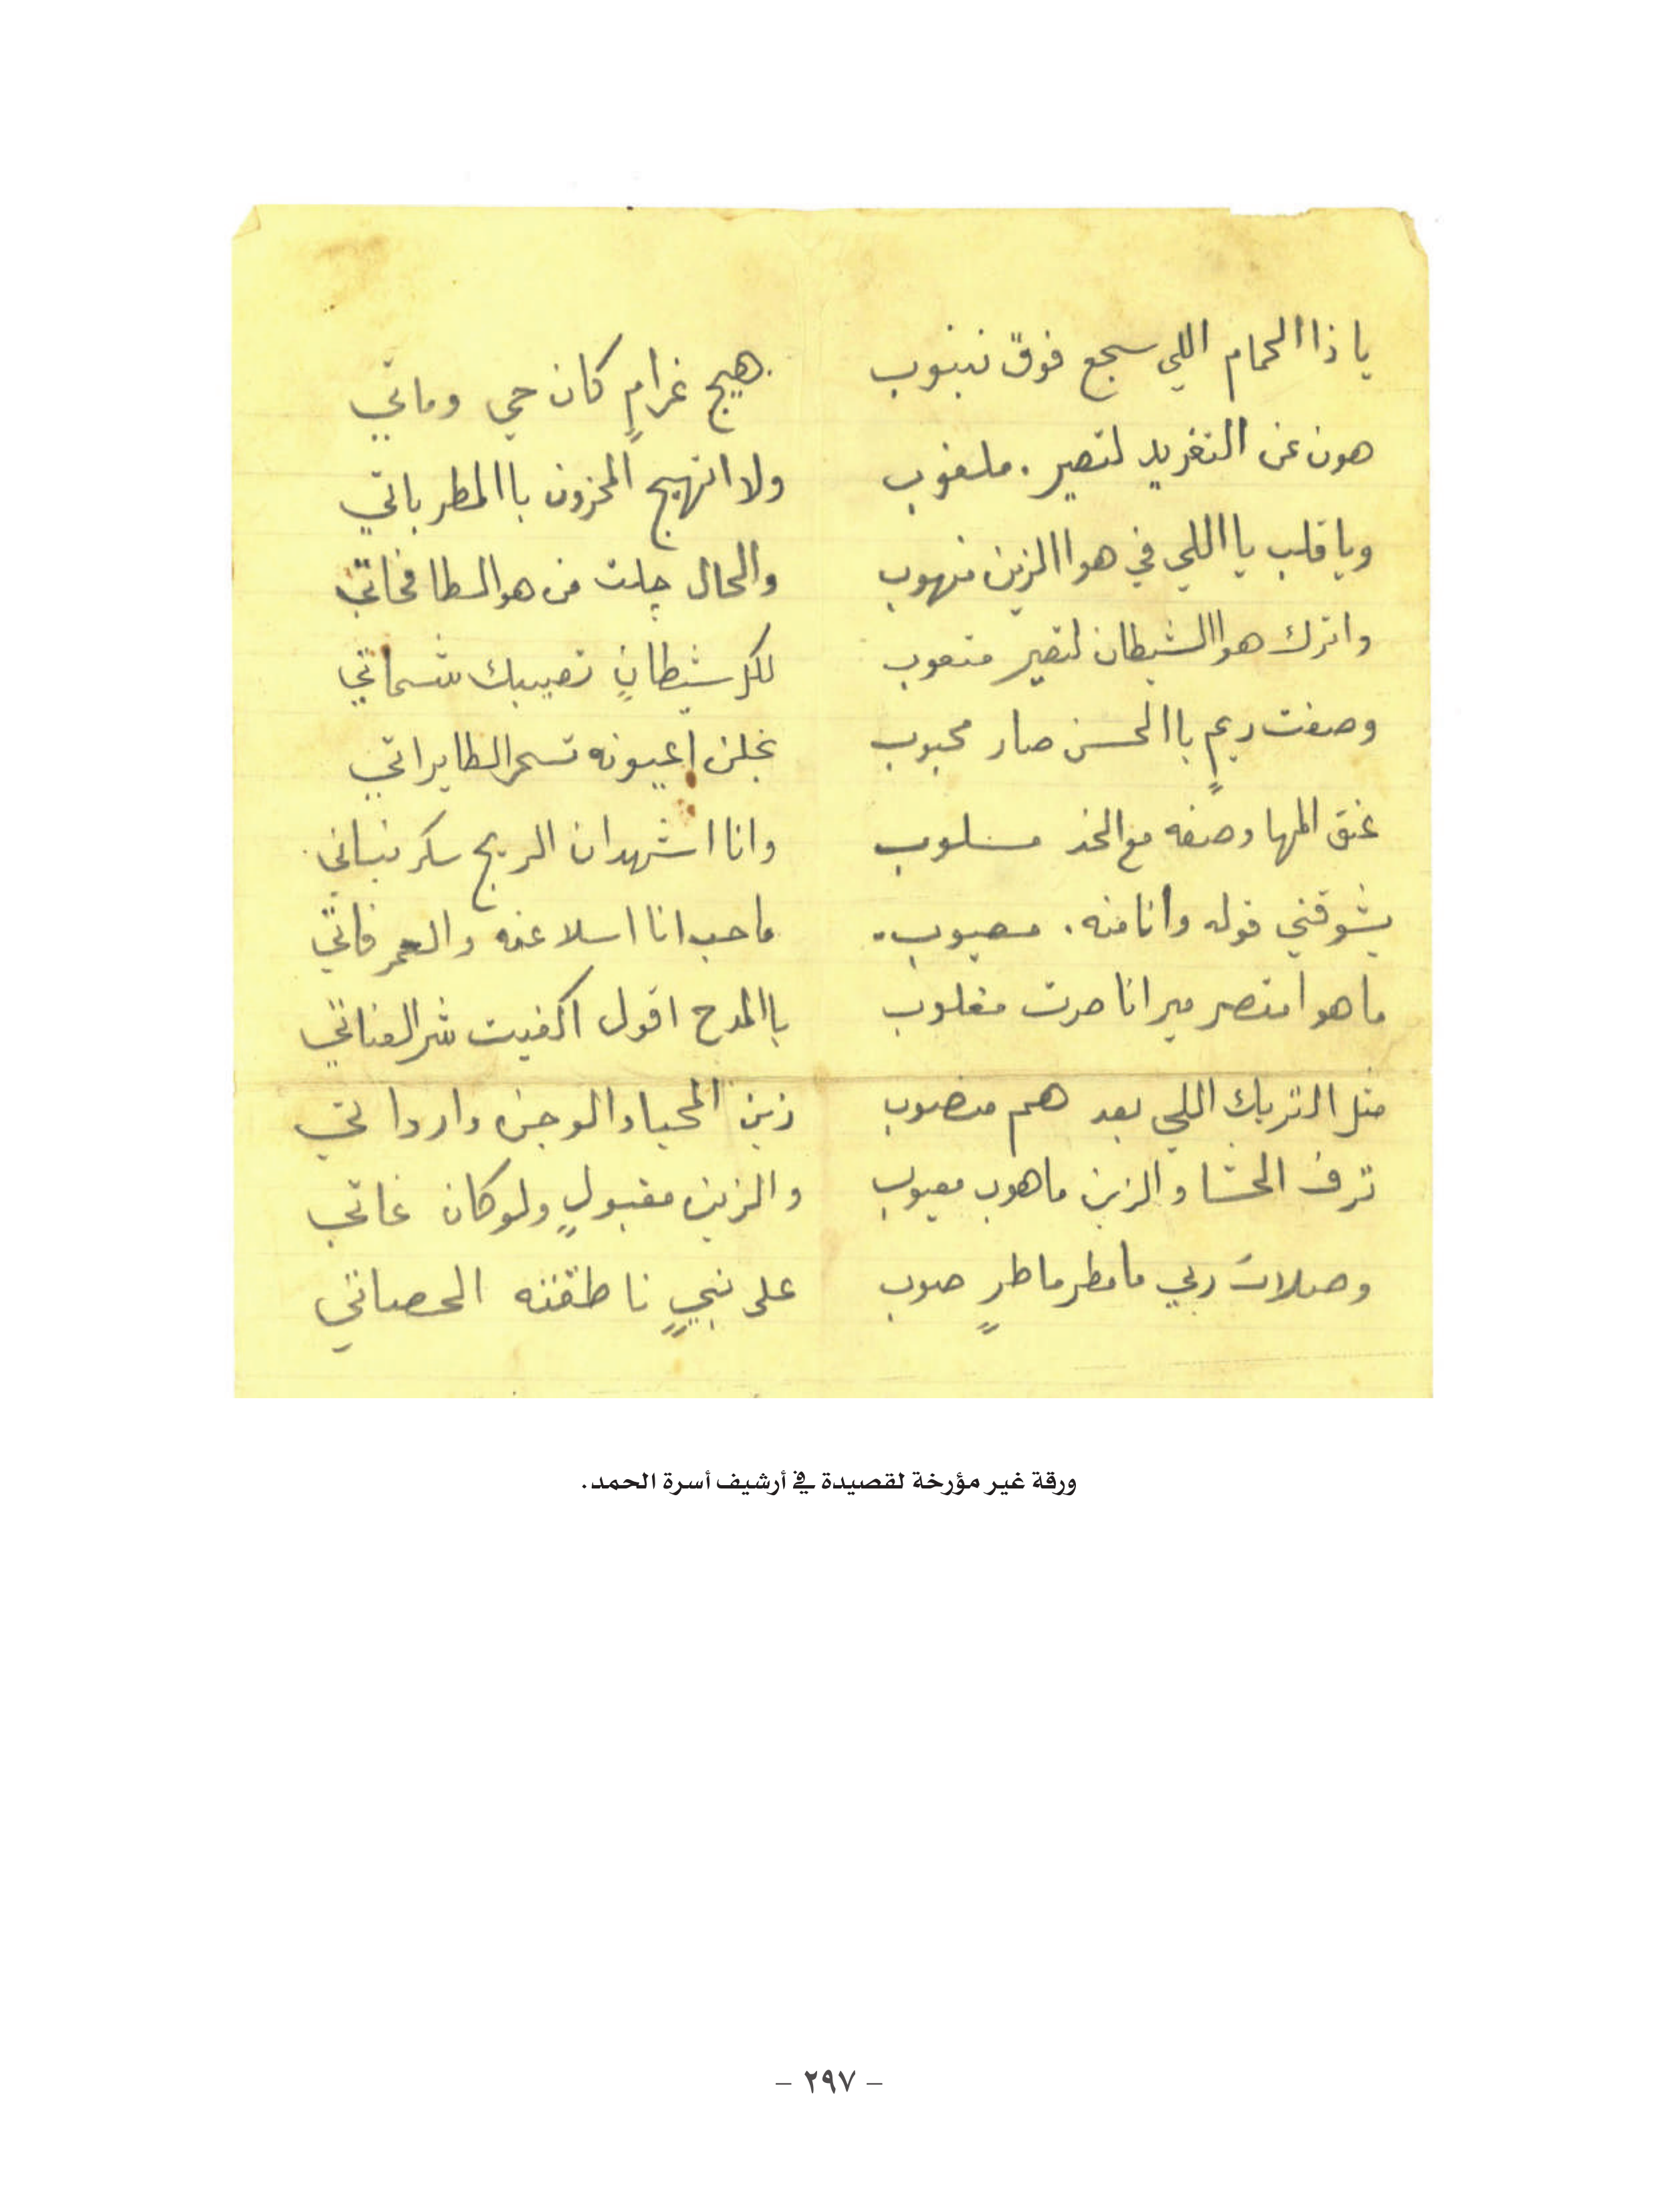 ياذاالحمام اللي سجع فوق نبنوب هيج غرامٍ كان حي وماتي
هون عن التغريد لتصير ملغوب ولا اتهيج المحزون باالمطرباتي
وياقلب يااللي في هواالزين منهوب والحال چلت من هوالسطافخاتي
واترك هواالشيطان لتصير متعوب لكل شيطانٍ تصيبك شماتي
وصفت ريمٍ باالحسن صار محبوب نجلن اعيونه تسحرالطايراتي
عنق المها وصفه مع الخد مسلوب وانا اشهدان الريج سكر نباتي
يشوقني قوله وانامنه مصيوب ماحب انا اسلا عنه والعمر فاتي
ماهوا منتصر مير انا صرت مغلوب باالمدح اقول اكفيت شرالعناتي
مثل التريك اللي بعد هم منصوب زين المحيا والوجن وارداتي
ترف الحشا والزين ماهوب معيوب والزين مقبولٍ ولوكان عاتي
وصلات ربي مامطرماطرٍ صوب على نبيٍ ناطقنه الحصاتي
ورقة غير مؤرخة لقصيدة في أرشيف أسرة الحمد.
– ٢٩٧ –